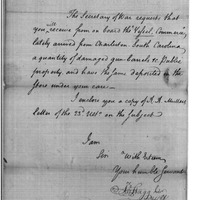 The Secretary of War requests that
you will receive from on board the Vessel Commerce
lately arrived from Charleston South Carolina
a quantity of damaged gun barrels &c Public
property, and have the same deposited in the
Store under your care.
I enclose you a copy of
Letter of the 23d Ulto. on the subject.
I am
Sir With Esteem
Your humble Servant